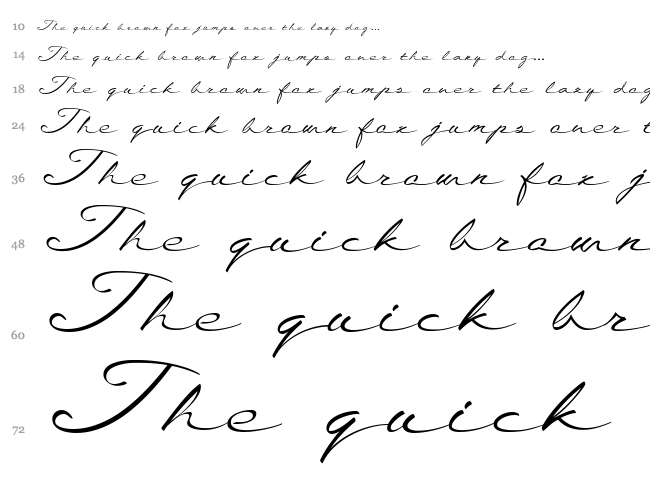 10 The quick brown fox jumps over the lazy dog...
14 The quick brown fox jumps over the lazy dog...
18 The quick brown fox jumps over the lazy dog
24 The quick brown fox jumps over t
36 The quick brown fox j
48 The quick brown
60 The quick br
72 The quick